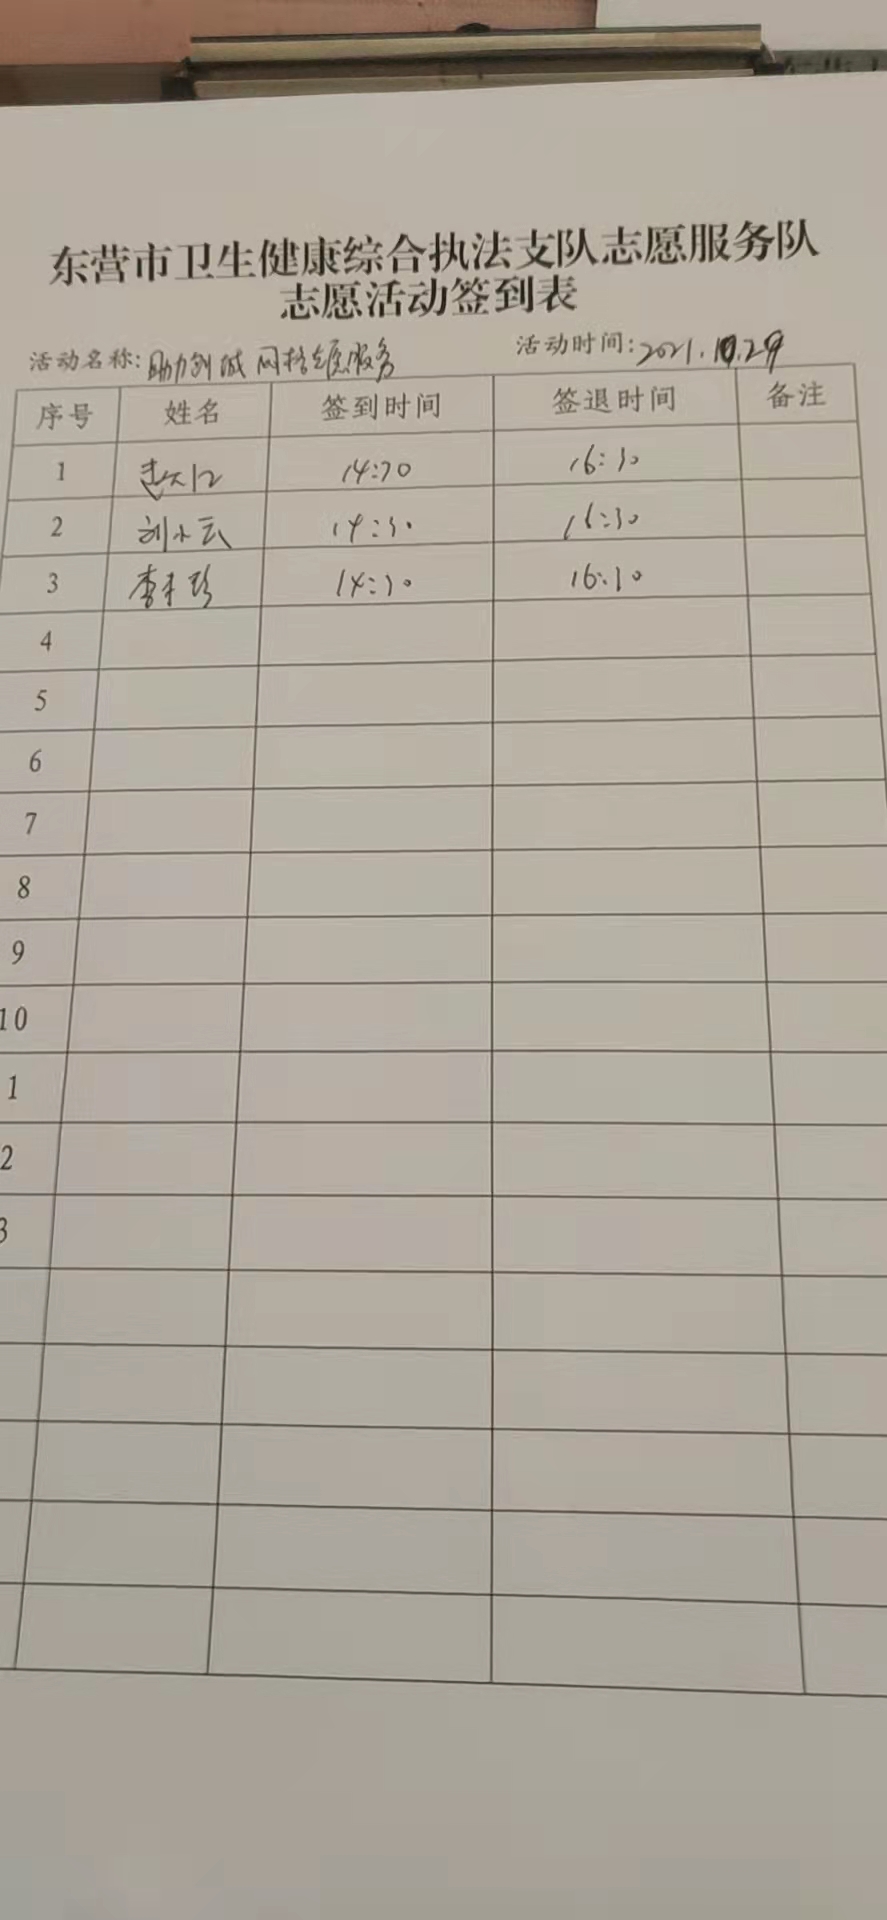 东营市卫生健康综合执法支队志愿服务队
志愿活动签到表
活动名称:助力创城网格志愿服务 活动时间:2021.10.29
序号 姓名 签到时间 签退时间 备注
1 14:30 16:30
2 刘小云 14:30 16:30
3 李 珍 14:30 16:30
4
5
6
7
8
9
10
1
2
3